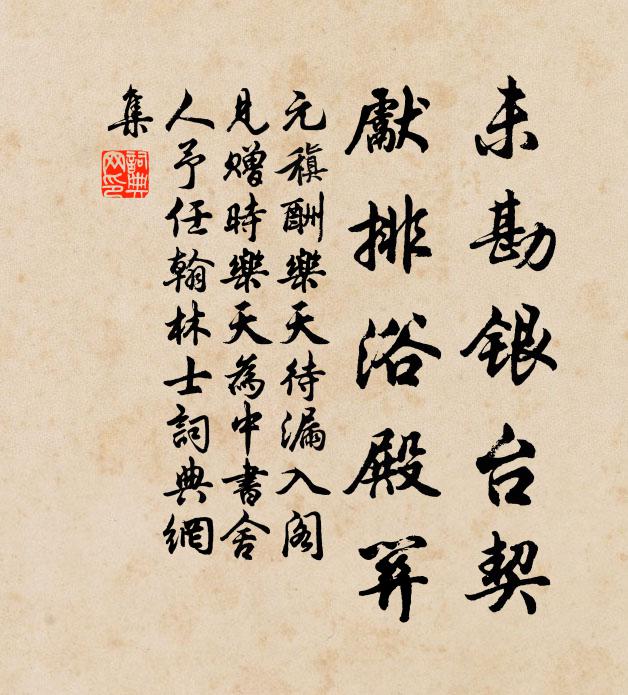 未勘銀台契
獻排浴殿关
元稹酬樂天待漏入阁
見贈時樂天為中書舍
人予任翰林士詞典網
集
詞典網印